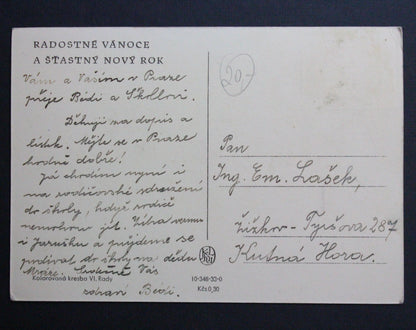 RADOSTNÉ VÁNOCE
A ŠŤASTNÝ NOVÝ ROK
Vám a Vašim v Praze
přeje Bédi a
Děkuji za dopis a
lístek. Mějte se v Praze
hodně dobře!
Já chodím nyní i
na rodičovské sdružení
do školy, když rodiče
nemohou jít.
i Jarušku a půjdeme se
podívat do školy na dědu
Mráze. Srdečně Vás
zdraví Bédi.
Kolorovaná kresba Vl. Rady
20,-
Pan
Ing. Em. Lašek,
Žižkov - Tyršova 287
Kutná Hora.
10-346-33-0
Kčs 0,30